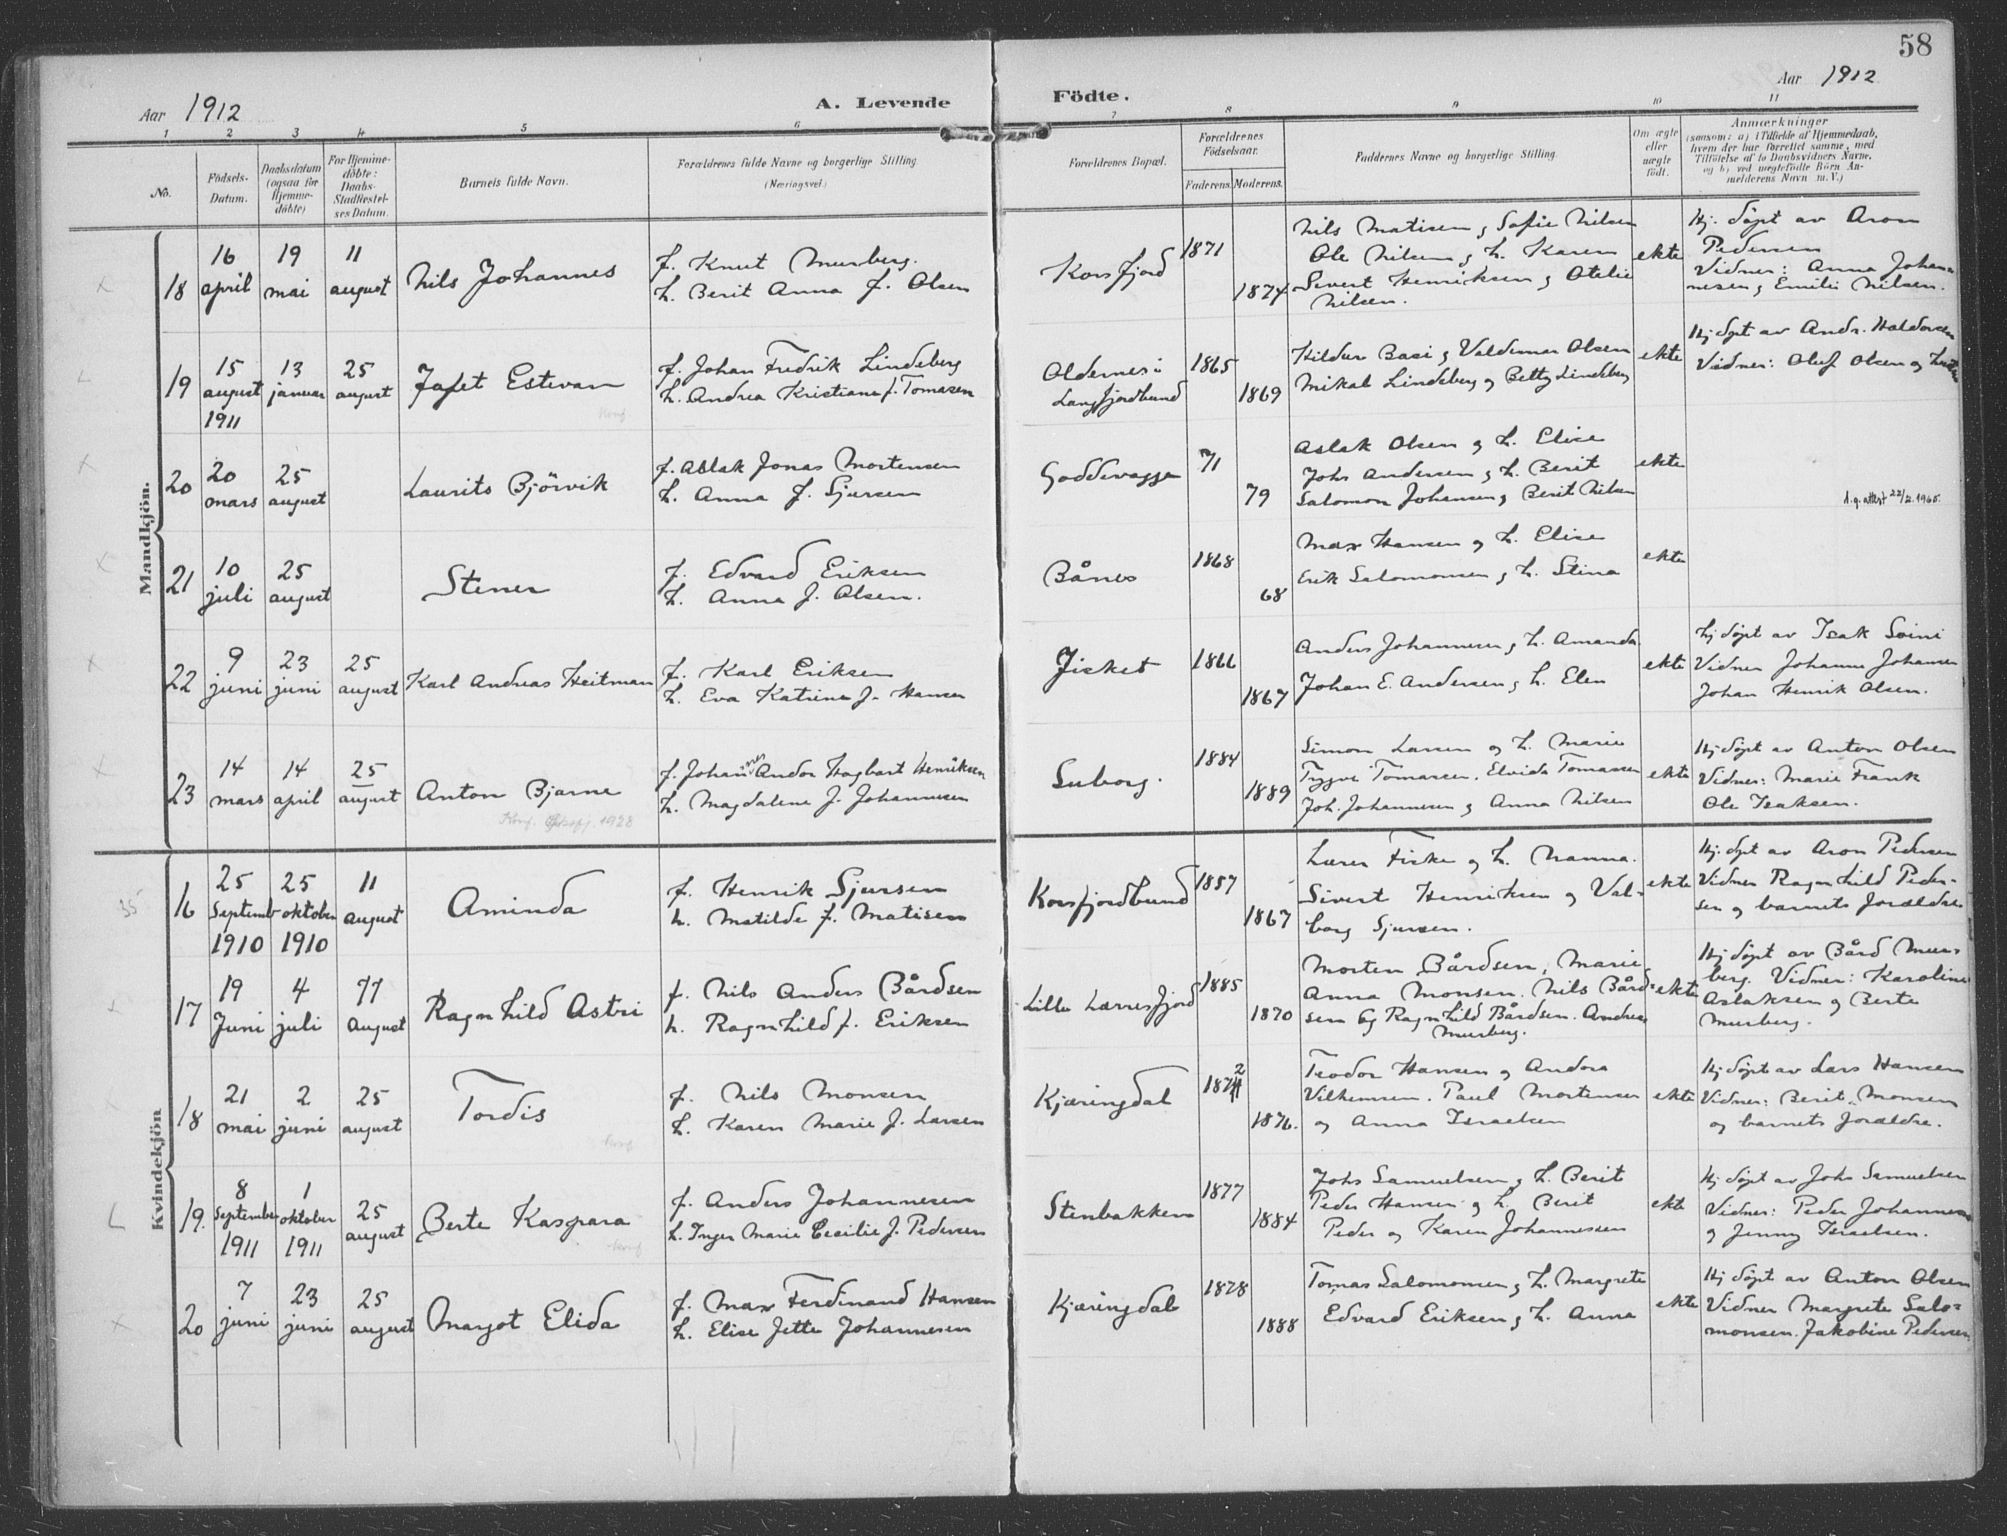 58
Aar 1912
A. Levende
Födte.
Aar 1912
1 2 3 4 5 6 7 8 9 10 11
No.
Födsels-
Datum.
Daabsdatum
(ogsaa for
Hjemme-
döbte)
For Hjemme-
döbte:
Daabs-
Stadfæstel-
ses Datum.
Barnets fulde Navn.
Forældrenes fulde Navne og borgerlige Stilling
(Næringsvei.)
Forældrenes Bopæl.
Forældrenes
Födselsaar.
Faderens. Moderens.
Faddernes Navne og borgerlige Stilling.
Om ægte
eller
uægte
födt.
Anmærkninger
(saasom: a) i Tilfælde af Hjemmedaab,
hvem der har forrettet samme, med
Tilföielse af to Daabsvidners Navne,
og b) ved uægtefödte Börn An-
melderens Navn m. V.)
Mandkjön.
18
16
april
19
mai
11
august
Nils Johannes
f. Knut Murberg.
h. Berit Anna f. Olsen
Korsfjord
1871
1874
Nils Matisen g Sofie Nilsen
Ole Nilsen g h. Karen
Sivert Henriksen g Otelie
Nilsen.
ekte
Hj. döpt av Aron
Pedersen
Vidner: Anna Johan-
nesen g Emilie Nilsen.
19
15
august
1911
13
januar
25
august
Jafet Estevan
Konf
f. Johan Fredrik Lindeberg
h. Andrea Kristiane f. Tomasen
Oldernes i
Langfjordbund
1865
1869
Hildur Basi g Valdemar Olsen
Mikal Lindeberg og Betty Lindeberg
ekte
Hj. döpt av Andr. Haldorsen
Vidner: Oluf Olsen og
20
20
mars
25
august
Laurits Björvik
f. Aslak Jonas Mortensen
h. Anna f. Sjursen
Goddevagge
71
79
Aslak Olsen g h. Elise
Johs Andersen g h. Berit
Salomon Johansen g Berit Nilsen
ekte
d.g. attest 22/2.1965.
21
10
juli
25
august
Stener
f. Edvard Eriksen
h. Anna f. Olsen.
Bånes
1868
68
Max Hansen og h. Elise
Erik Salomonsen g h. Stina
ekte
22
9
juni
23
juni
25
august
Karl Andreas Heitman
f. Karl Eriksen
h. Eva Katrine f. Hansen
Jisket
1866
1867
Anders Johannesen g h. Amanda
Johan E. Andersen g h. Elen
ekte
Hj. döpt av Isak Soini
Vidner Johanne Johansen
Johan Henrik Olsen.
23
14
mars
14
april
25
august
Anton Bjarne
Konf. 1928
f. Johan Andor Hagbart Henriksen
h. Magdalene f. Johannesen
Suborg.
1884
1889
Simon Larsen og h. Marie
Trygve Tomassen. Elvida Tomassen
Joh. Johannesen g Anna Nilsen
ekte
Hj. döpt av Anton Olsen
Vidner: Marie Frank
Ole Isaksen.
Kvindekjön
16
25
Septemb
1910
25
oktober
1910
11
august
Aminda
f. Henrik Sjursen
h. Matilde f. Matisen
Korsfjordbund
1857
1867
Lærer Fiske og h. Nanna.
Sivert Henriksen og Val-
borg Sjursen.
ekte
Hj. döpt av Aron Pedersen
Vidner Ragnhild Peder-
sen og barnets forældre
17
19
Juni
4
juli
11
august
Ragnhild Astri
f. Nils Anders Bårdsen
h. Ragnhild f. Eriksen
Lille Lerresfjord
1885
1870
Morten Bårdsen, Marie
Anna Monsen. Nils Bård-
sen og Ragnhild Bårdsen. Andreas
Murberg.
ekte
Hj. döpt av Bård Mur-
berg. Vidner: Karoline
Aslaksen og Berte
Murberg.
18
21
mai
2
juni
25
august
Tordis
Konf
f. Nils Monsen
h. Karen Marie f. Larsen
Kjæringdal
1872
1876.
Teodor Hansen og Andora
Vilhemsen. Paul Mortensen
og Anna Israelsen
ekte
Hj. döpt av Lars Hansen
Vidner: Berit Monsen
og barnets forældre.
19.
8
September
1911
1
oktober
1911
25
august
Berte Kaspara
Konf
f. Anders Johannesen
h. Inger Marie Cecilie f. Pedersen
Stenbakken
1877
1884
Johs Samuelsen g h. Berit
Peder Hansen g h. Berit
Peder og Karen Johannessen
ekte
Hj. döpt av Johs Samuelsen
Vidner: Peder Johannesen
g Jenny Israelsen.
20
7
juni
23
juni
25
august
Margot Elida
f. Max Ferdinand Hansen
h. Elise Jette Johannesen
Kjæringdal
1878
1888
Tomas Salomonsen g h. Margrete
Edvard Eriksen g h. Anna
ekte
Hj. döpt av Anton Olsen
Vidner Margrete Salo-
monsen. Jakobine Pedersen